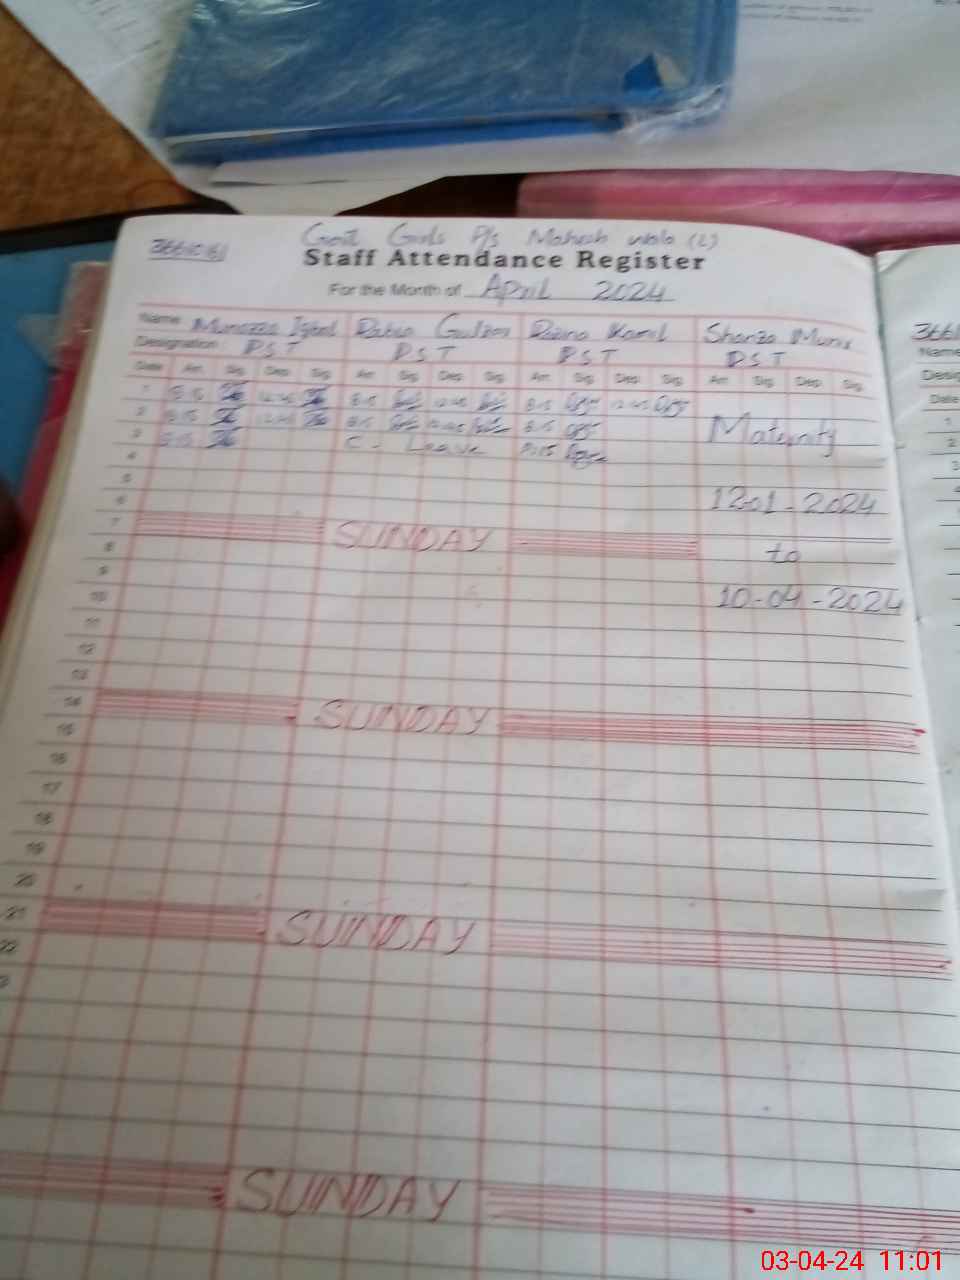 36610161
Govt Girls P/s Mahesh wala (L)
Staff Attendance Register
For the Month of April 2024
Name Munazza Iqbal Rabia Gulzar Kamil Shanza Munir
Designation PST PST PST PST
Date Arr. Sig. Dep. Sig. Arr. Sig. Dep. Sig. Arr. Sig. Dep. Sig. Arr. Sig. Dep. Sig.
1 8:15 12:45 8:15 12:45 8:15 12:45
2 8:15 12:45 8:15 12:45 8:15 Maternity
3 8:15 C - Leave 8:15
4
5
6 12-01-2024
7 SUNDAY
8 to
9
10 10-04-2024
11
12
13
14 SUNDAY
15
16
17
18
19
20
21 SUNDAY
22
SUNDAY
3661
Name
Date
1
2
3
03-04-24 11:01